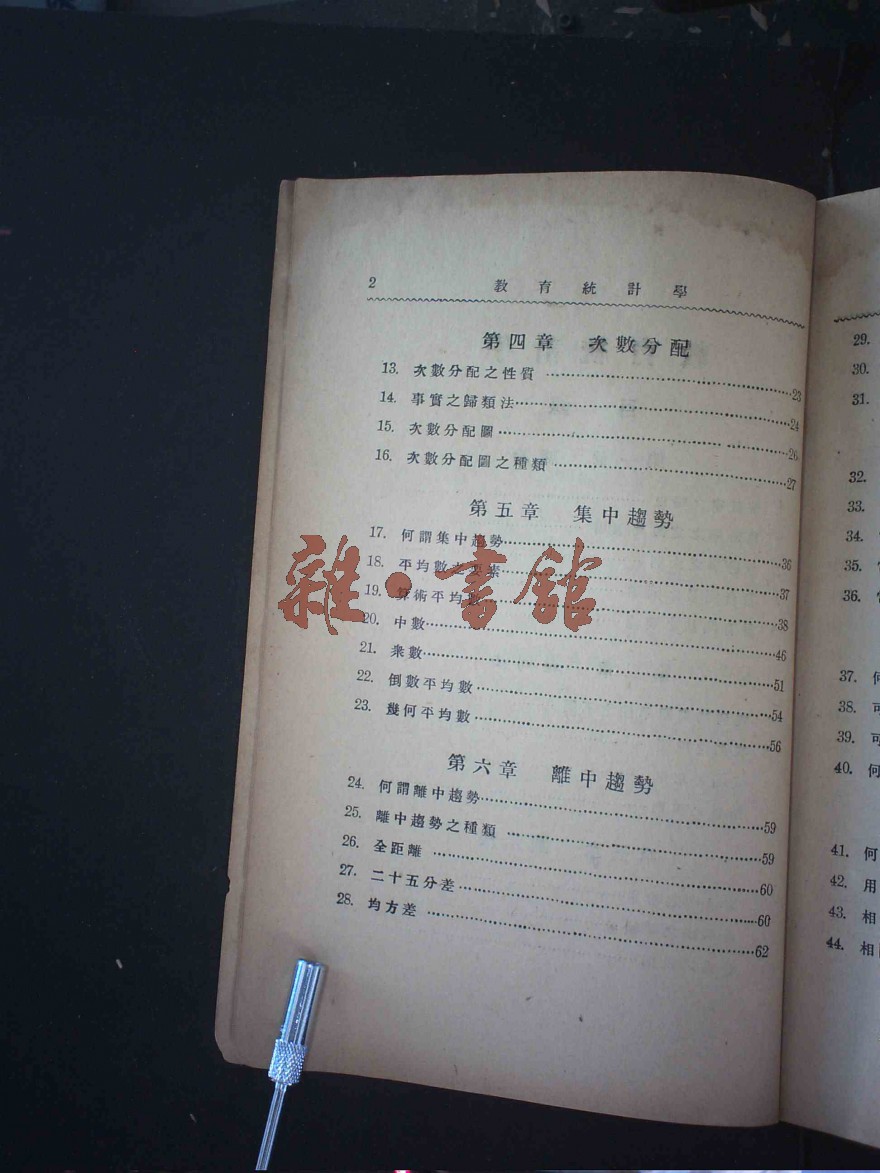 2 教育統計學
第四章 次數分配
13. 次數分配之性質 ……23
14. 事實之歸類法……24
15. 次數分配圖……26
16. 次數分配圖之種類……27
第五章 集中趨勢
17. 何謂集中趨勢……36
18. 平均數之要素……37
19. 算術平均數……38
20. 中數……46
21. 衆數……51
22. 倒數平均數……54
23. 幾何平均數……56
第六章 離中趨勢
24. 何謂離中趨勢……59
25. 離中趨勢之種類……59
26. 全距離……60
27. 二十五分差……60
28. 均方差……62
雜·書館
29.
30.
31.
32.
33.
34.
35.
36.
37. 何
38. 可
39. 可
40. 何
41. 何
42. 用
43. 相
44. 相